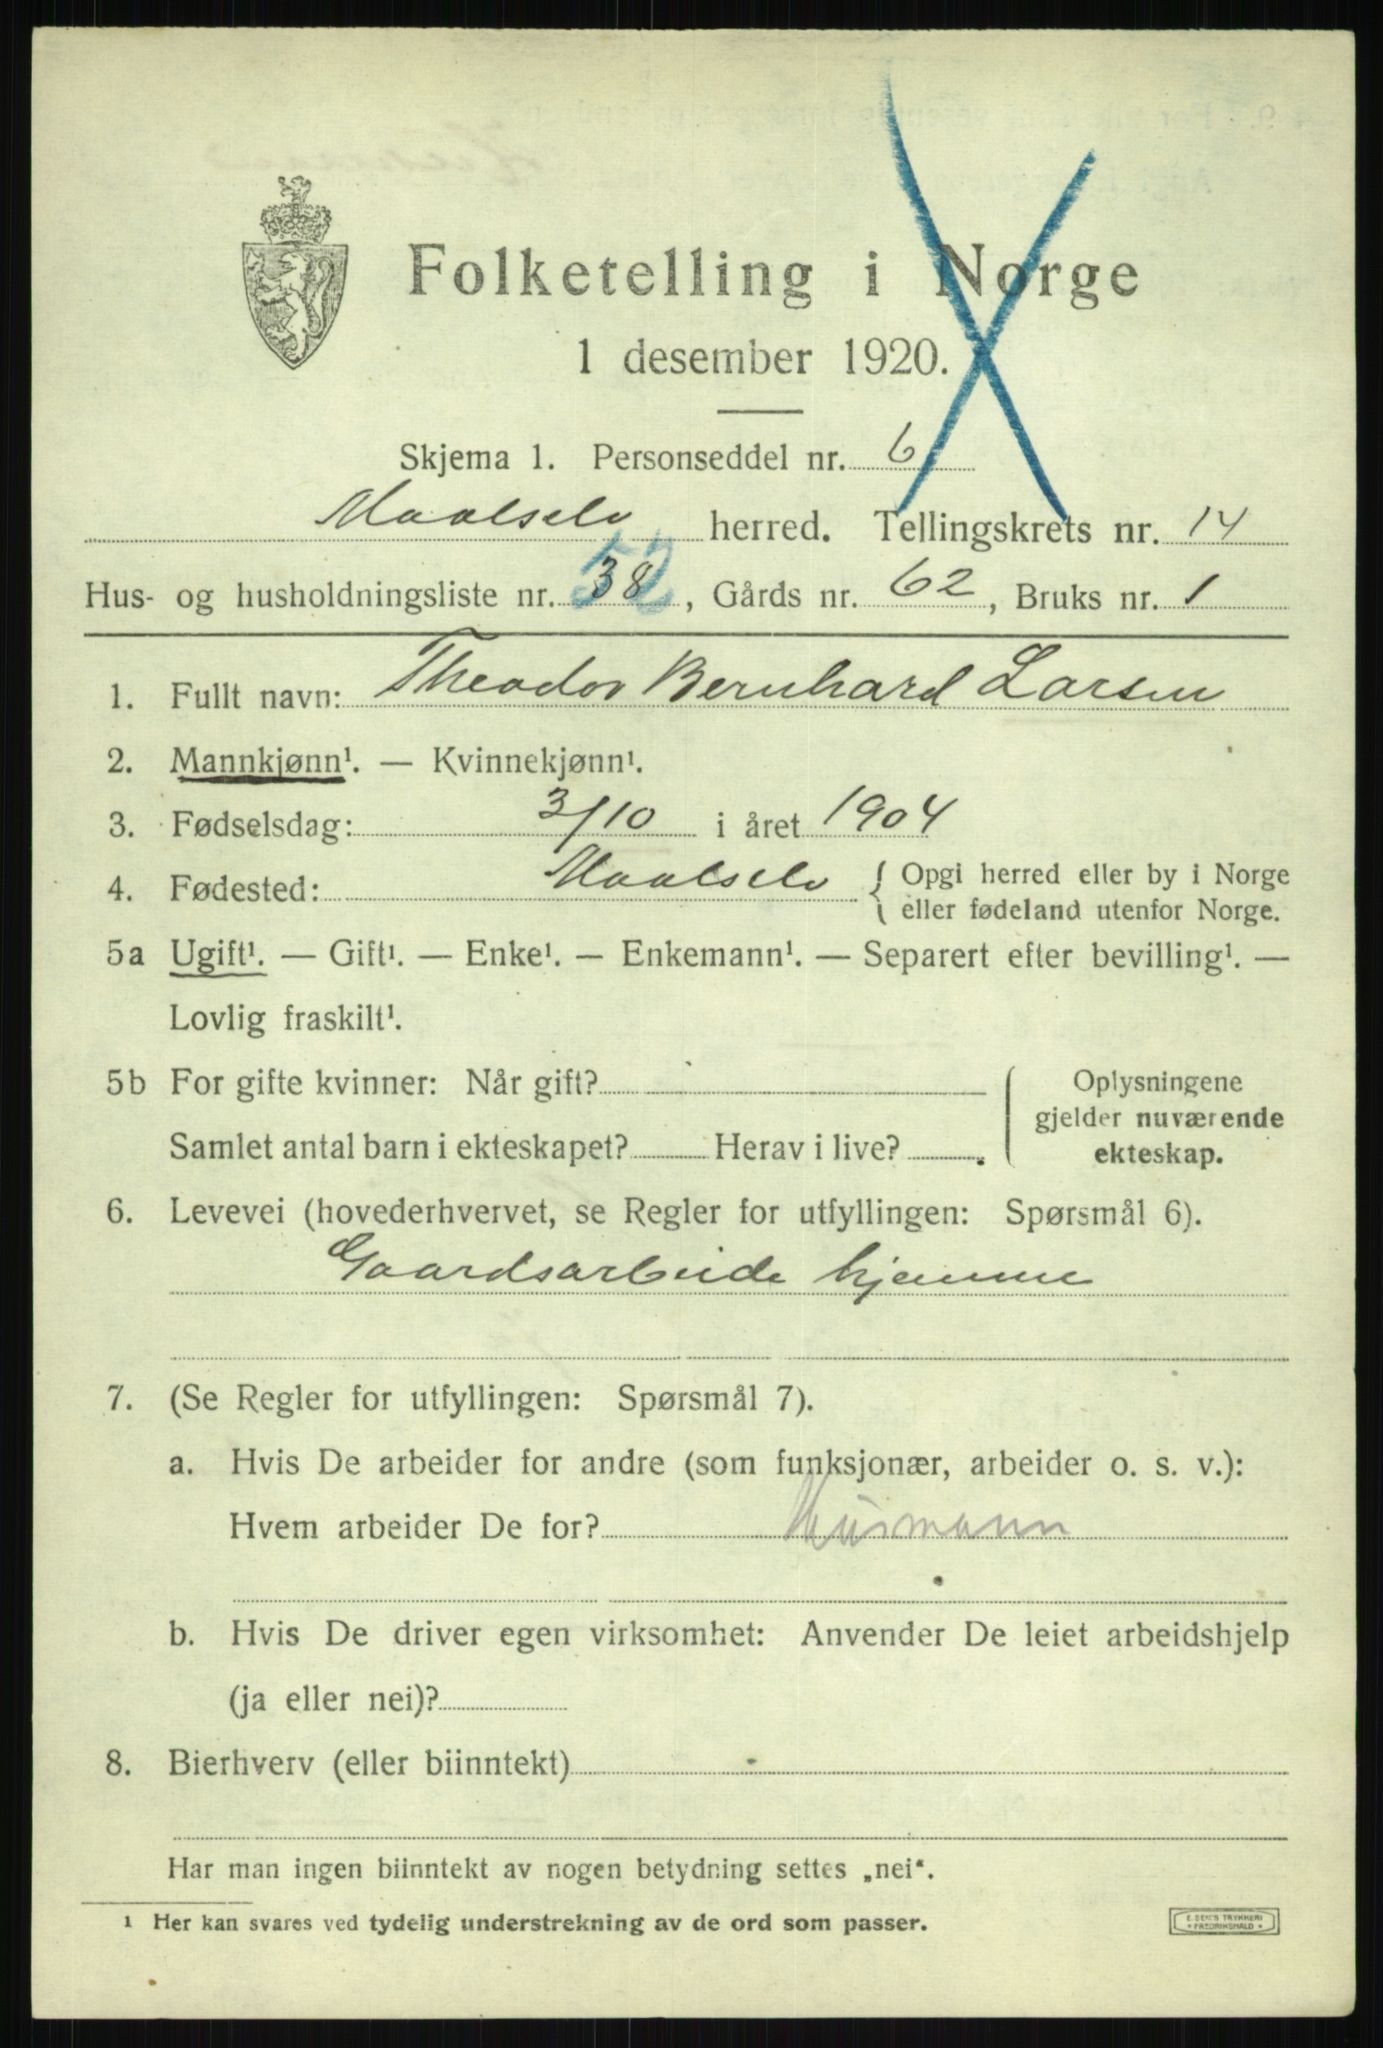 Folketelling i Norge
1 desember 1920.
Skjema 1. Personseddel nr. 6
Maalselv herred. Tellingskrets nr. 14
Hus- og husholdningsliste nr. 38 52, Gårds nr. 62, Bruks nr. 1
1. Fullt navn: Theodor Bernhard Larsen
2. Mannkjønn¹. — Kvinnekjønn¹.
3. Fødselsdag: 3/10 i året 1904
4. Fødested: Maalselv { Opgi herred eller by i Norge
eller fødeland utenfor Norge.
5a Ugift¹. — Gift¹. — Enke¹. — Enkemann¹. — Separert efter bevilling¹. —
Lovlig fraskilt¹.
5b For gifte kvinner: Når gift?
Samlet antal barn i ekteskapet? Herav i live? .
Oplysningene
gjelder nuværende
ekteskap.
6. Levevei (hovederhvervet, se Regler for utfyllingen: Spørsmål 6).
Gaardsarbeide hjemme
7. (Se Regler for utfyllingen: Spørsmål 7).
a. Hvis De arbeider for andre (som funksjonær, arbeider o. s. v.):
Hvem arbeider De for? Husmann
b. Hvis De driver egen virksomhet: Anvender De leiet arbeidshjelp
(ja eller nei)?
8. Bierhverv (eller biinntekt)
Har man ingen biinntekt av nogen betydning settes „nei".
¹ Her kan svares ved tydelig understrekning av de ord som passer.
E. SEM'S TRYKKERI
FREDRIKSHALD